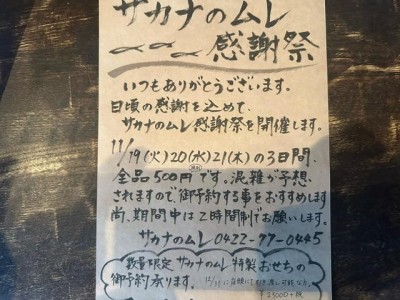 サカナのムレ
感謝祭
いつもありがとうございます。
日頃の感謝を込めて、
サカナのムレ感謝祭を開催します。
11/19(火)20(水)21(木)の3日間、
全品500円です。混雑が予想
されますので御予約する事をおすすめします
尚、期間中は2時間制でお願いします。
サカナのムレ 0422-77-0445
数量限定 サカナのムレ 特製 おせちの
御予約承ります。
¥23000+税